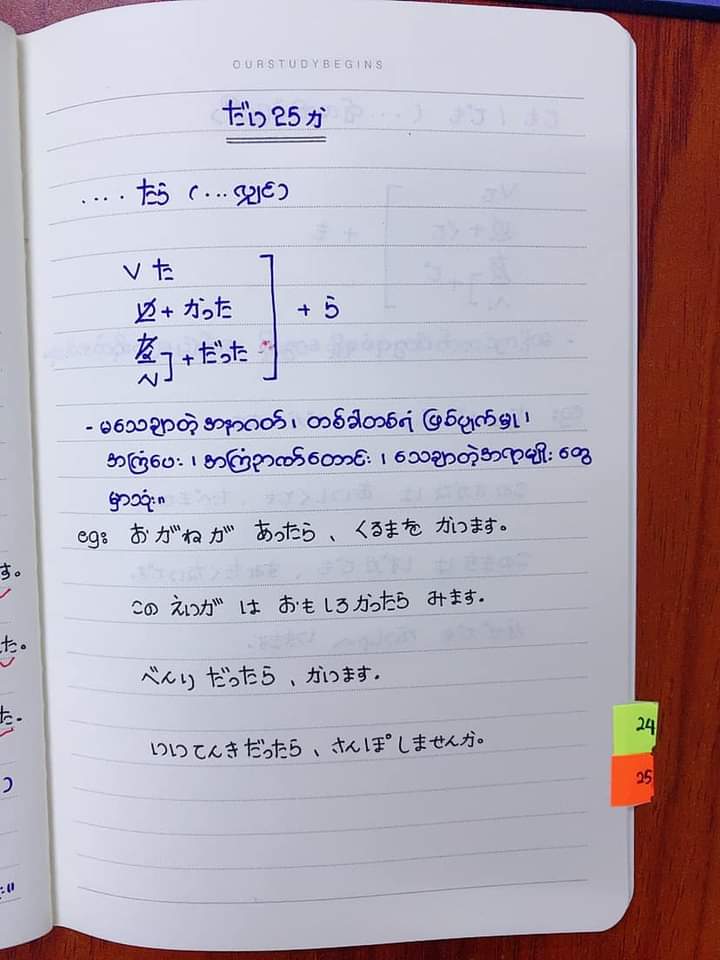 OURSTUDYBEGINS
だい25か
.... たら (...လျှင်)
Vた
い + かった
な
N ] + だった
] + ら
- မသေချာတဲ့ အနာဂတ်၊ တစ်ခါတစ်ရံ ဖြစ်ပျက်မှု၊
အကြံပေး၊ အကြံဉာဏ်တောင်း၊ သေချာတဲ့အရာမျိုး တွေ
မှာသုံး။
eg: おがねが あったら、くるまを かいます。
この えいがは おもしろかったら みます.
べんりだったら、かいます.
いいてんきだったら、さんぽしませんか。
24
25
す。
た。
た.